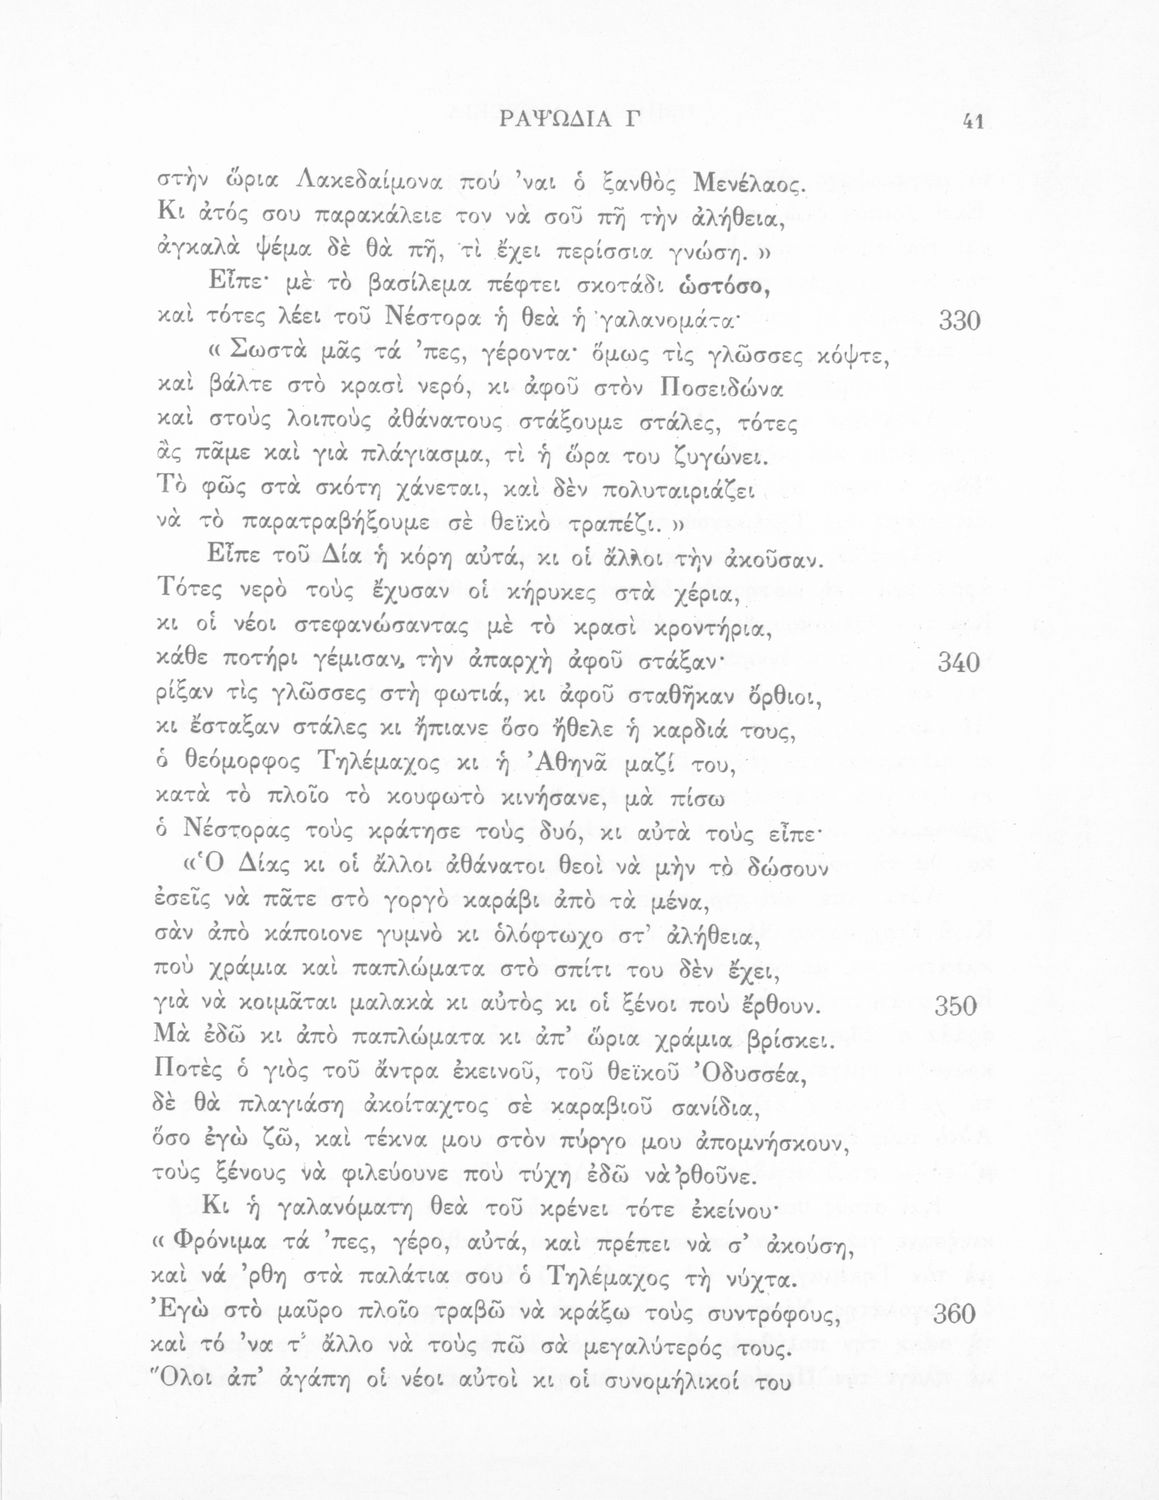 ΡΑΨΩΔΙΑ Γ 41
στὴν ὥρια Λακεδαίμονα πού 'ναι ὁ ξανθὸς Μενέλαος.
Κι ἀτός σου παρακάλειε τον νὰ σοῦ πῇ τὴν ἀλήθεια,
ἀγκαλὰ ψέμα δὲ θὰ πῇ, τὶ ἔχει περίσσια γνώση. »
Εἶπε· μὲ τὸ βασίλεμα πέφτει σκοτάδι ὡστόσο,
καὶ τότες λέει τοῦ Νέστορα ἡ θεὰ ἡ γαλανομάτα· 330
« Σωστὰ μᾶς τά 'πες, γέροντα· ὅμως τὶς γλῶσσες κόψτε,
καὶ βάλτε στὸ κρασὶ νερό, κι ἀφοῦ στὸν Ποσειδώνα
καὶ στοὺς λοιποὺς ἀθάνατους στάξουμε στάλες, τότες
ἂς πᾶμε καὶ γιὰ πλάγιασμα, τὶ ἡ ὥρα του ζυγώνει.
Τὸ φῶς στὰ σκότη χάνεται, καὶ δὲν πολυταιριάζει
νὰ τὸ παρατραβήξουμε σὲ θεϊκὸ τραπέζι. »
Εἶπε τοῦ Δία ἡ κόρη αὐτά, κι οἱ ἄλλοι τὴν ἀκοῦσαν.
Τότες νερὸ τοὺς ἔχυσαν οἱ κήρυκες στὰ χέρια,
κι οἱ νέοι στεφανώσαντας μὲ τὸ κρασὶ κροντήρια,
κάθε ποτήρι γέμισαν, τὴν ἀπαρχὴ ἀφοῦ στάξαν· 340
ρίξαν τὶς γλῶσσες στὴ φωτιά, κι ἀφοῦ σταθῆκαν ὄρθιοι,
κι ἔσταξαν στάλες κι ἤπιανε ὅσο ἤθελε ἡ καρδιά τους,
ὁ θεόμορφος Τηλέμαχος κι ἡ Ἀθηνᾶ μαζί του,
κατὰ τὸ πλοῖο τὸ κουφωτὸ κινήσανε, μὰ πίσω
ὁ Νέστορας τοὺς κράτησε τοὺς δυό, κι αὐτὰ τοὺς εἶπε·
«Ὁ Δίας κι οἱ ἄλλοι ἀθάνατοι θεοὶ νὰ μὴν τὸ δώσουν
ἐσεῖς νὰ πᾶτε στὸ γοργὸ καράβι ἀπὸ τὰ μένα,
σὰν ἀπὸ κάποιονε γυμνὸ κι ὁλόφτωχο στ' ἀλήθεια,
ποὺ χράμια καὶ παπλώματα στὸ σπίτι του δὲν ἔχει,
γιὰ νὰ κοιμᾶται μαλακὰ κι αὐτὸς κι οἱ ξένοι ποὺ ἔρθουν. 350
Μὰ ἐδῶ κι ἀπὸ παπλώματα κι ἀπ' ὥρια χράμια βρίσκει.
Ποτὲς ὁ γιὸς τοῦ ἄντρα ἐκεινοῦ, τοῦ θεϊκοῦ Ὀδυσσέα,
δὲ θὰ πλαγιάση ἀκοίταχτος σὲ καραβιοῦ σανίδια,
ὅσο ἐγὼ ζῶ, καὶ τέκνα μου στὸν πύργο μου ἀπομνήσκουν,
τοὺς ξένους νὰ φιλεύουνε ποὺ τύχη ἐδῶ νὰ 'ρθοῦνε.
Κι ἡ γαλανόματη θεὰ τοῦ κρένει τότε ἐκείνου·
« Φρόνιμα τά 'πες, γέρο, αὐτά, καὶ πρέπει νὰ σ' ἀκούση,
καὶ νά 'ρθη στὰ παλάτια σου ὁ Τηλέμαχος τὴ νύχτα.
Ἐγὼ στὸ μαῦρο πλοῖο τραβῶ νὰ κράξω τοὺς συντρόφους, 360
καὶ τό 'να τ' ἄλλο νὰ τοὺς πῶ σὰ μεγαλύτερός τους.
Ὅλοι ἀπ' ἀγάπη οἱ νέοι αὐτοὶ κι οἱ συνομήλικοί του